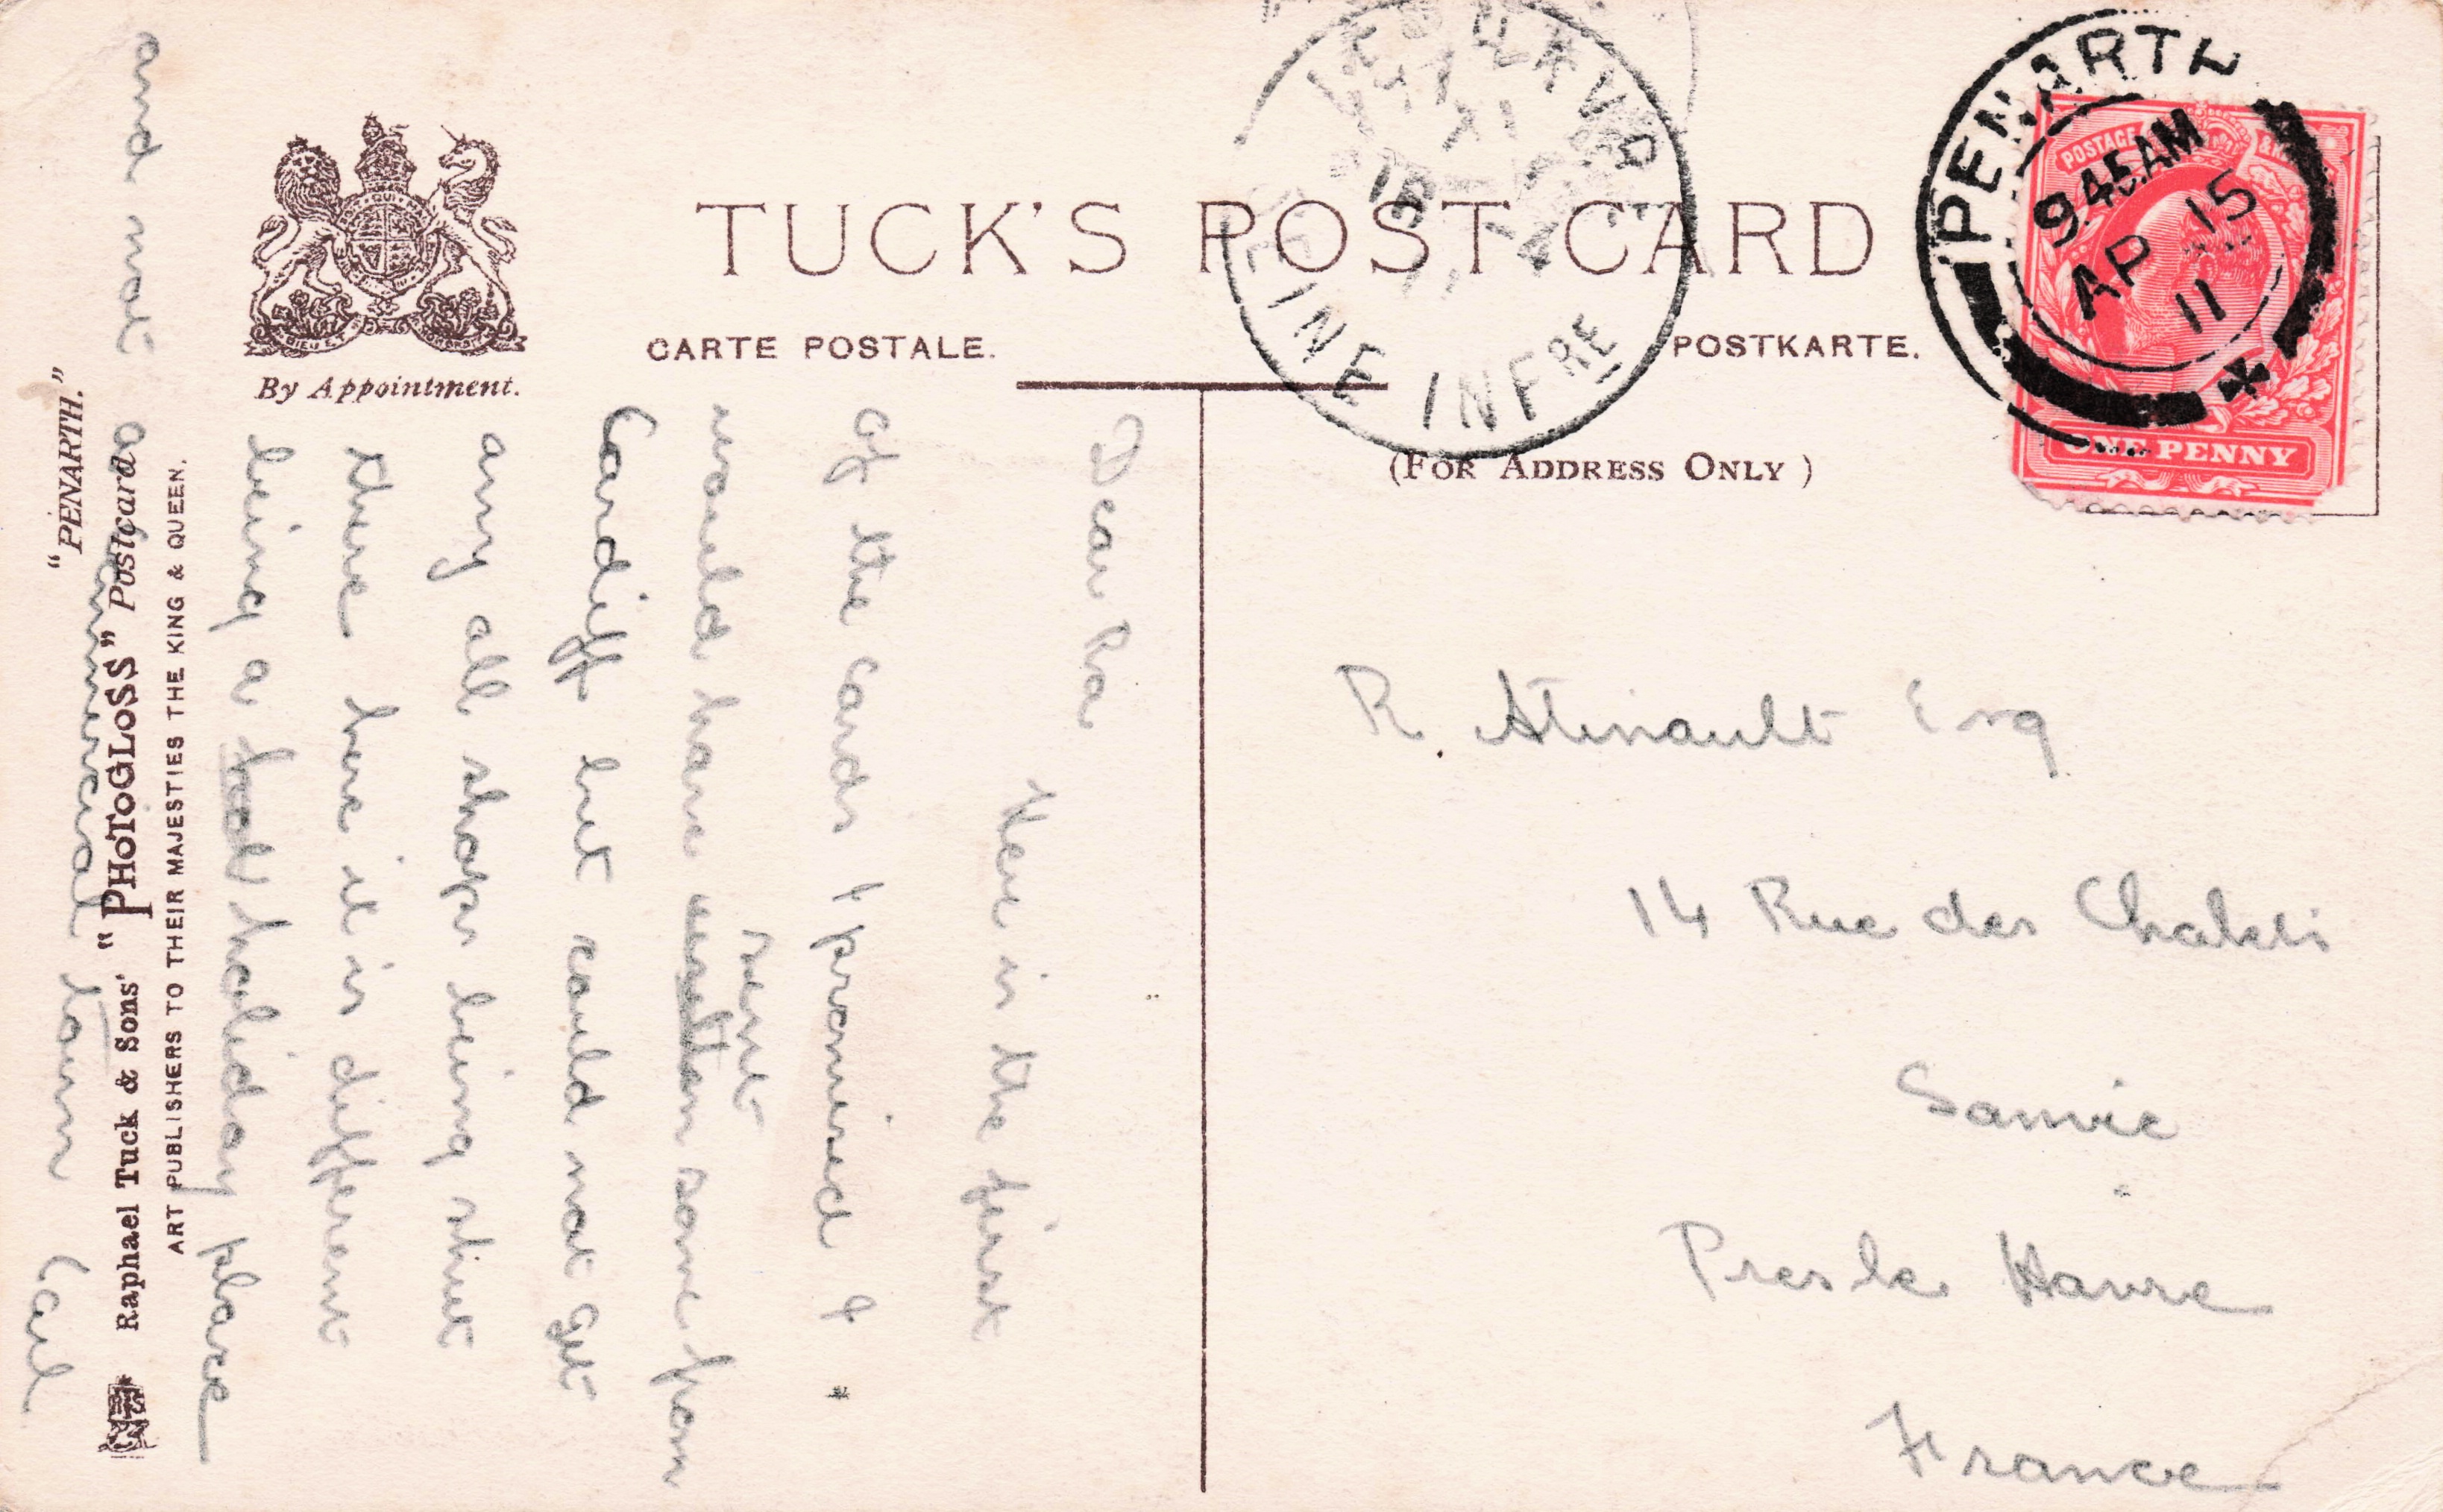 TUCK'S POST CARD
CARTE POSTALE.
POSTKARTE.
By Appointment.
(FOR ADDRESS ONLY)
PENARTH
9.45AM
AP 15
11
POSTAGE
ONE PENNY
INE INFRE
Dear Ra
Here is the first
of the cards I promised I
sent
would have written some from
Cardiff but could not get
any all shops being shut
there here it is different
being a holiday place
and not a commercial town
R. Atinault Esq
14 Rue des Chalets
Sanvic
Pres le Havre
France
"PENARTH."
Raphael Tuck & Sons' "PHOTOGLOSS" Postcard
ART PUBLISHERS TO THEIR MAJESTIES THE KING & QUEEN.